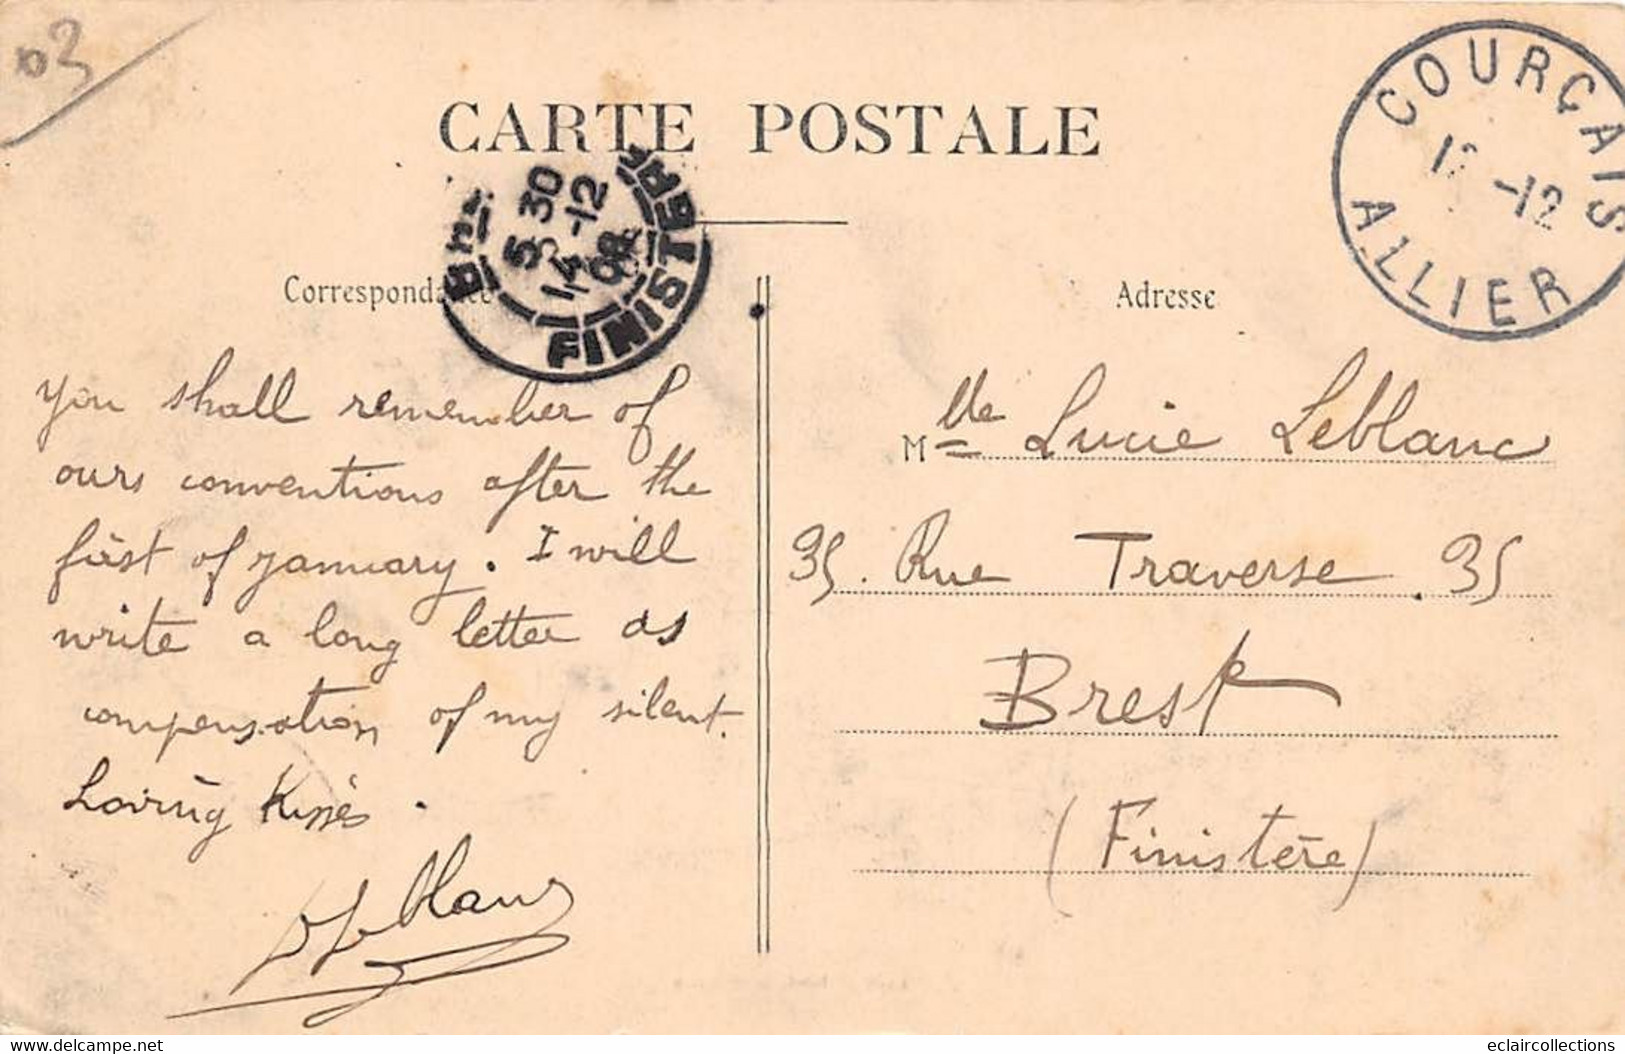 03
CARTE POSTALE
COURÇAIS
-12
ALLIER
5 30
14 -12
08
FINISTERE
Correspondance
Adresse
you shall remember of
ours conventions after the
first of january. I will
write a long letter as
compensation of my silent.
Loving Kisses.
Leblanc
Mlle Lucie Leblanc
35. Rue Traverse. 35
Brest
(Finistère)
www.delcampe.net
eclaircollections